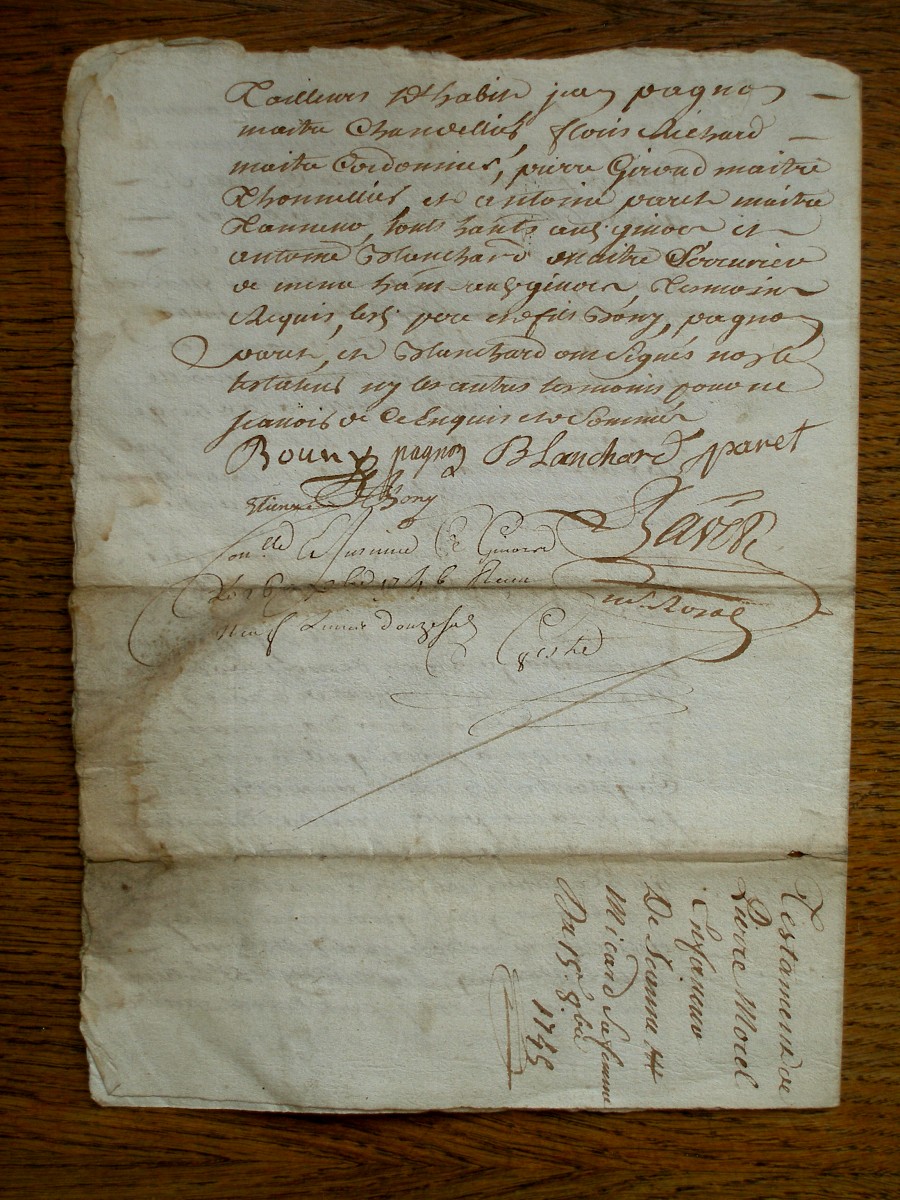 Tailleurs d'habits jean pagnon
maitre Chandellier, Floris Richard
maitre Cordonnier, pierre Giroud maitre
Thonnellier, et antoine paret maitre
Tanneur, touts hants audt givors et
antoine Blanchard maitre Serrurier
de meme hant audt givors, Tesmoins
Requis, lesd. pere et fils Bony, pagnon
paret, et Blanchard ont Signés non le
testateur ny les autres tesmoins pour ne
de ce Enquis et de Sommés
Bouny pagnon BLanchard paret
Etienne Bony
Conllé Givors
Le 16 1746 Reçu
neuf Livres douze sols
Royal
Testament de
Pierre Morel
De
Micard Sa femme
Du 15. 8bre
1745